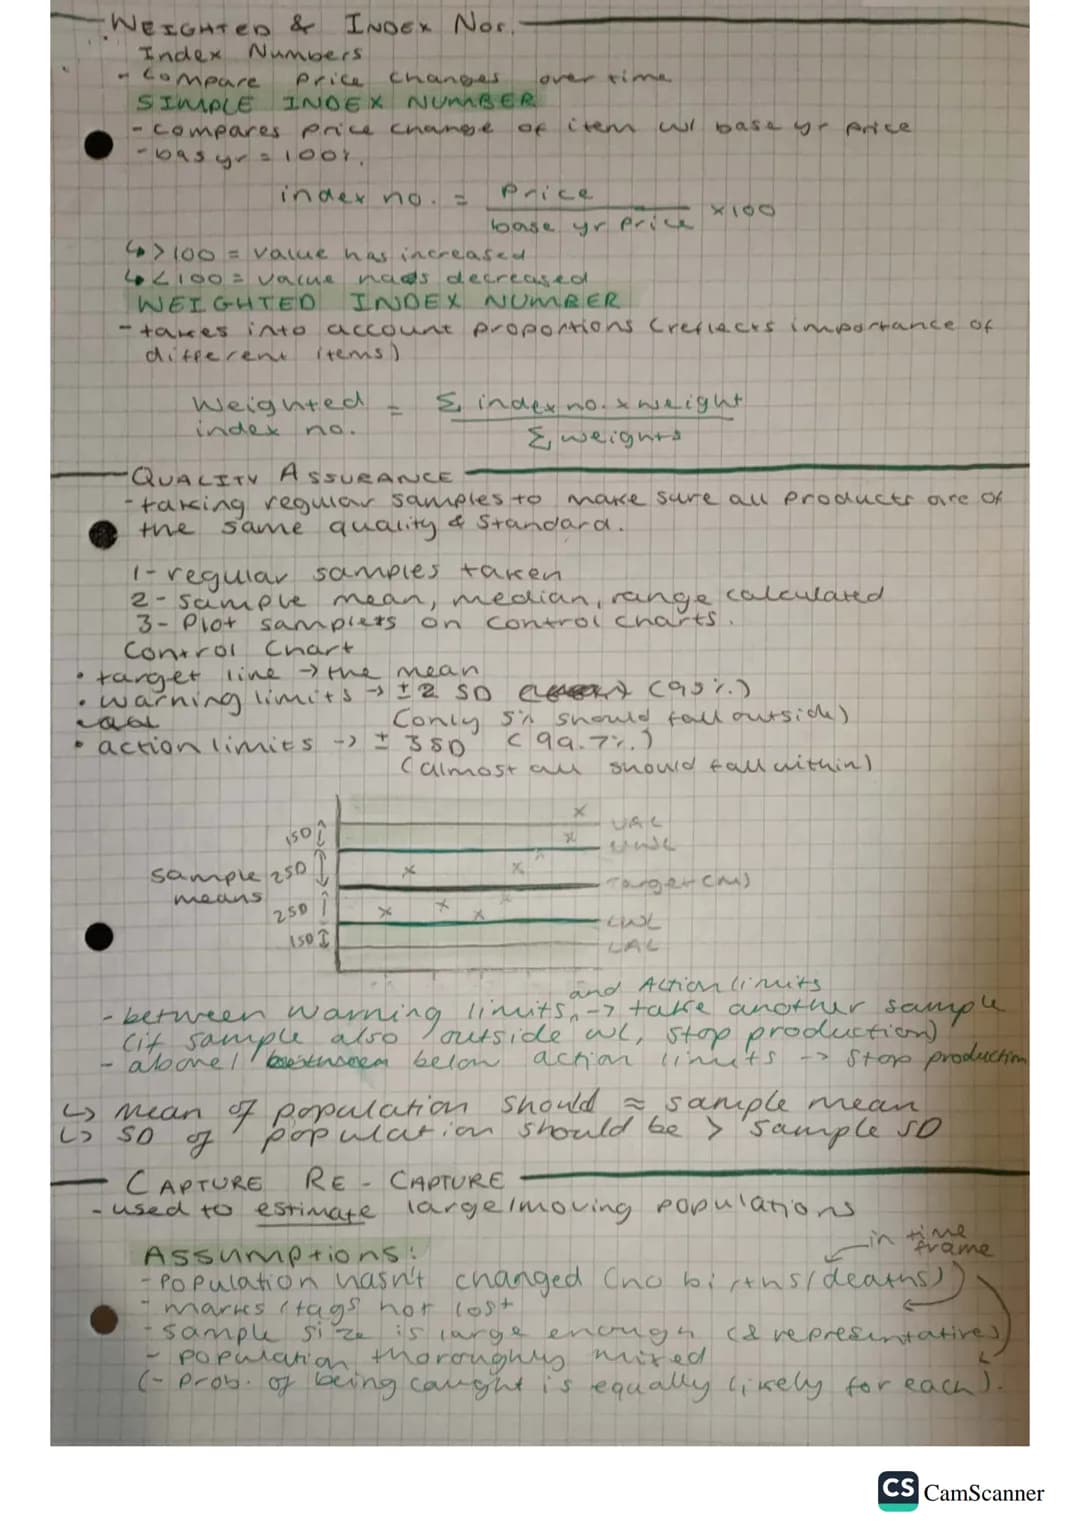 WEIGHTED & INDEX Nos.
Index Numbers
- Compare price changes over time
SIMPLE INDEX NUMBER
- compares price change of item w/ base yr price
- bas yr = 100%.
index no. = Price
base yr price ×100
↳ >100 = value has increased
↳ <100 = value has decreased
WEIGHTED INDEX NUMBER
- takes into account proportions (reflects importance of
different items)
Weighted = Σ index no. × weight
index no. Σ weights
QUALITY ASSURANCE
- taking regular samples to make sure all products are of
the same quality & standard.
1- regular samples taken
2- sample mean, median, range calculated
3- Plot samplets on control charts.
Control Chart
• target line → the mean
• warning limits → ±2 SD (95%.)
(only 5% should fall outside)
• action limits -> ± 3SD (99.7%.)
(almost all should fall within)
1SD UAL
UWL
sample 2SD Target (m)
means
2SD LWL
1SD LAL
and Action limits
- between warning limits, -> take another sample
(if sample also outside WL, stop production)
- above / below action limits -> stop production
↳ Mean of population should ≈ sample mean
↳ SD of population should be > sample SD
CAPTURE RE-CAPTURE
- used to estimate large/moving populations
in time
frame
ASSUMPTIONS:
- Population hasn't changed (no births/deaths)
- marks / tags not lost
- sample size is large enough (& representative)
- population thoroughly mixed
(- prob. of being caught is equally likely for each).
CS CamScanner